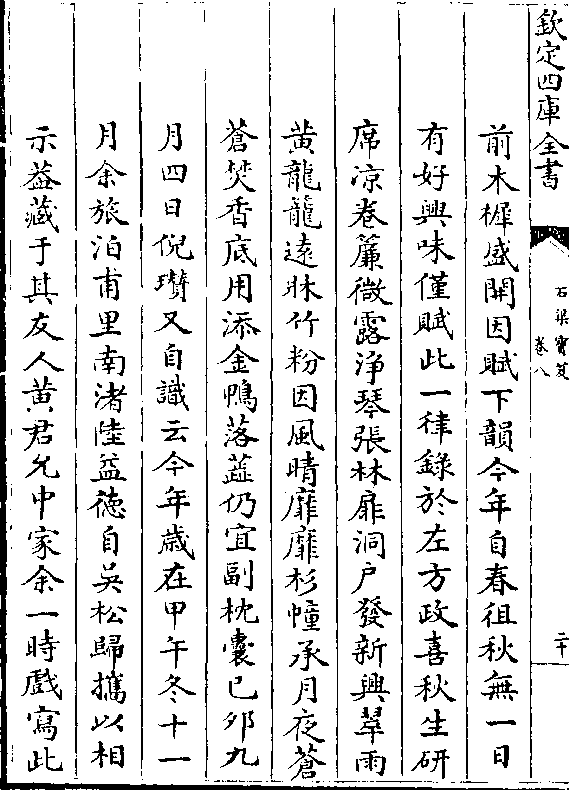 欽定四庫全書
石渠寶笈
卷八
二十
前木樨盛開因賦下韻今年自春徂秋無一日
有好興味僅賦此一律錄於左方政喜秋生研
席凉卷簾微露淨琴張林扉洞户發新興翠雨
黄龍籠遠牀竹粉因風晴靡靡杉幢承月夜蒼
蒼焚香底用添金鴨落蕋仍宜副枕囊已夘九
月四日倪瓚又自識云今年歳在甲午冬十一
月余旅泊甫里南渚陸益徳自吳松歸攜以相
示葢藏于其友人黄君允中家余一時戲寫此